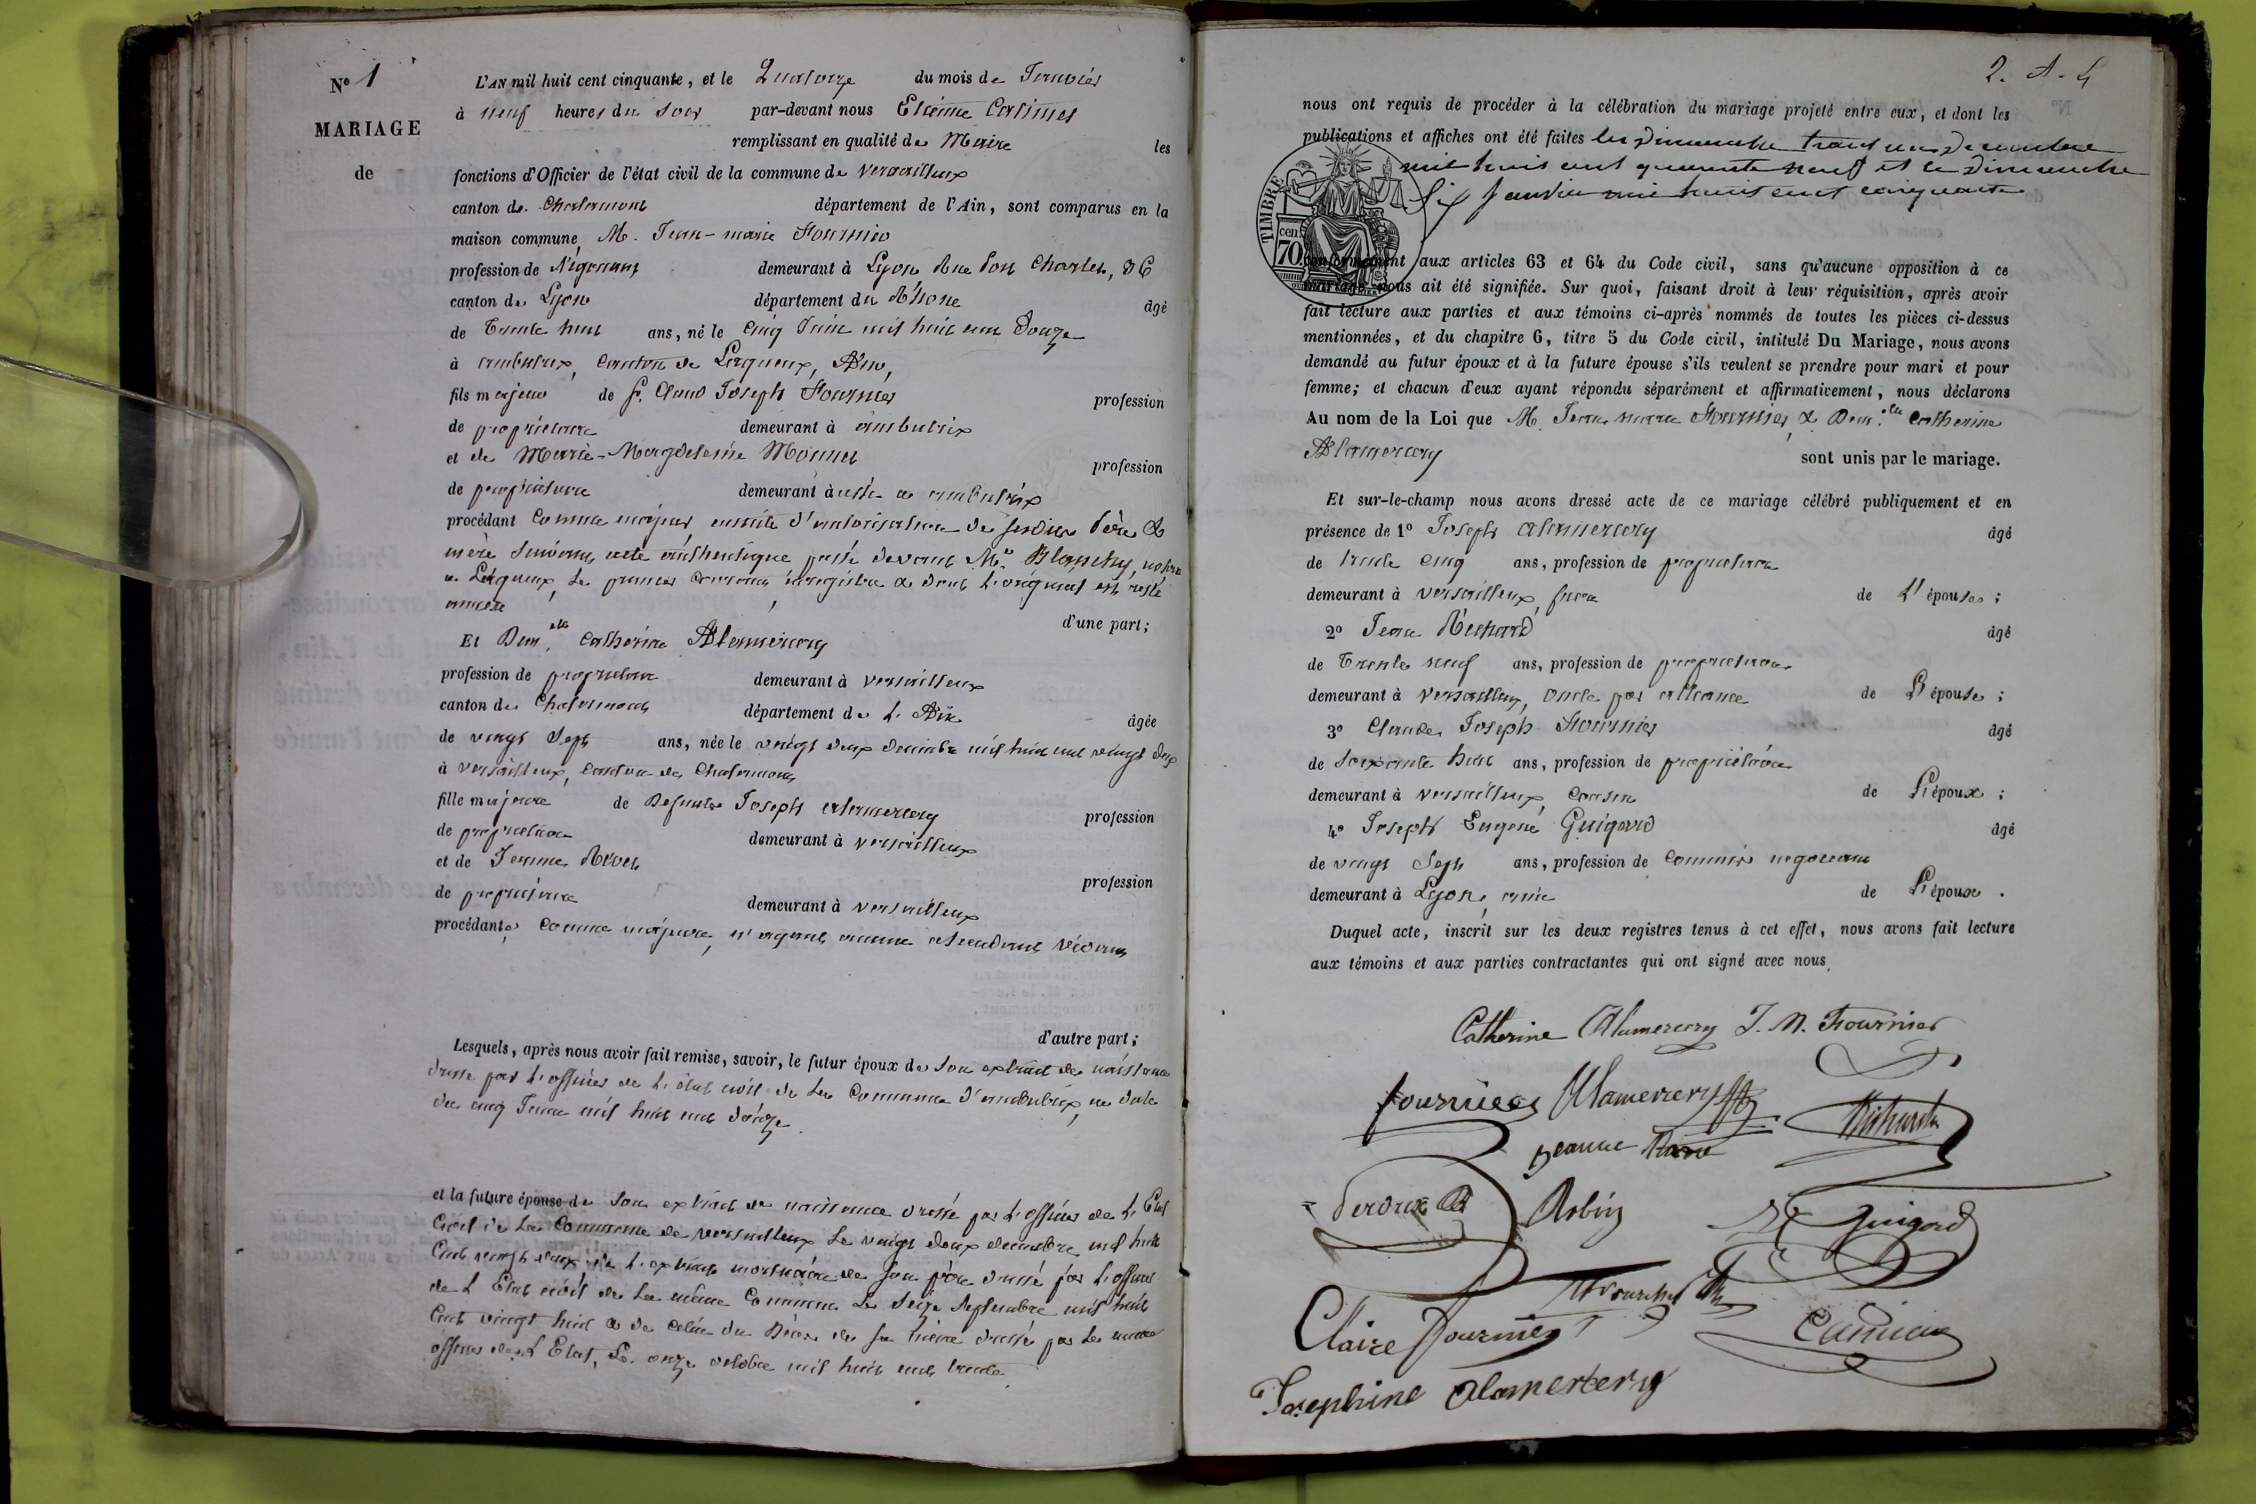 N° 1
MARIAGE
de
L'AN mil huit cent cinquante, et le Quatorze du mois de Janvier
à neuf heures du soir par-devant nous Etienne Casimir
remplissant en qualité de Maire les
fonctions d'Officier de l'état civil de la commune de Versailleux
canton de Chalamont département de l'Ain, sont comparus en la
maison commune, M. Jean-marie Fournier
profession de Négociant demeurant à Lyon Rue Port Charlet, 36
canton de Lyon département du Rhône âgé
de Trente huit ans, né le cinq Juin mil huit cent Douze
à ambutrix, canton de Lagneux, Ain,
fils majeur de Sr. Claud Joseph Fournier profession
de propriétaire demeurant à ambutrix
et de Marie-Magdeleine Monnet profession
de propriétaire demeurant à ambutrix
procédant comme majeur, ensuite d'autorisation de ses dits Père &
mère suivant acte authentique passé devant Me. Blanchy, notaire
a Lagneux, le premier courant, enregistré & dont l'original est resté
annexé
d'une part;
Et Demlle. Catherine Alamercery
profession de propriétaire demeurant à Versailleux
canton de Chalamont département de L'Ain âgée
de vingt Sept ans, née le vingt deux decembre mil huit cent vingt deux
à versailleux, canton de Chalamont
fille majeure de Defunts Joseph alamercery profession
de propriétaire demeurant à versailleux
et de Jeanne Rivet profession
de propriétaire demeurant à versailleux
procédante comme majeure, n'ayant aucune ascendant vivant
d'autre part;
Lesquels, après nous avoir fait remise, savoir, le futur époux de son extrait de naissance
dressé par l'officier de l'état civil de la Commune d'ambutrix, en date
du cinq Juin mil huit cent douze.
et la future épouse de son extrait de naissance dressé par l'officier de l'Etat
Civil de la Commune de versailleux Le vingt deux decembre mil huit
Cent vingt deux, de l'extrait mortuaire de son père dressé par l'officier
de L'Etat civil de la même Commune Le Seize Septembre mil huit
Cent vingt huit & de celui du Décès de sa mère dressé par le même
officier de L'Etat, Le onze octobre mil huit cent trente.
nous ont requis de procéder à la célébration du mariage projeté entre eux, et dont les
publications et affiches ont été faites les Dimanche trente un Decembre
mil huit cent quarante neuf et le Dimanche
Six Janvier mil huit cent cinquante
TIMBRE
cent
70.
conformément aux articles 63 et 64 du Code civil, sans qu'aucune opposition à ce
mariage nous ait été signifiée. Sur quoi, faisant droit à leur réquisition, après avoir
fait lecture aux parties et aux témoins ci-après nommés de toutes les pièces ci-dessus
mentionnées, et du chapitre 6, titre 5 du Code civil, intitulé Du Mariage, nous avons
demandé au futur époux et à la future épouse s'ils veulent se prendre pour mari et pour
femme; et chacun d'eux ayant répondu séparément et affirmativement, nous déclarons
Au nom de la Loi que M. Jean marie Fournier & Demlle. Catherine
Alamercery sont unis par le mariage.
Et sur-le-champ nous avons dressé acte de ce mariage célébré publiquement et en
présence de 1° Joseph alamercery âgé
de trente cinq ans, profession de propriétaire
demeurant à versailleux, frere de L'épouse;
2° Jean Richard âgé
de Trente neuf ans, profession de propriétaire
demeurant à versailleux, oncle par alliance de L'épouse;
3° Claude Joseph Fournier âgé
de soixante huit ans, profession de propriétaire
demeurant à versailleux, cousin de L'époux;
4° Joseph Eugené Guigard âgé
de vingt Sept ans, profession de Commis négociant
demeurant à Lyon, ami de L'époux.
Duquel acte, inscrit sur les deux registres tenus à cet effet, nous avons fait lecture
aux témoins et aux parties contractantes qui ont signé avec nous.
Catherine Alamercery J. M. Fournier
fournier Alamercery
Jeanne Richard
Robin Guigard
Claire Fournier Casimir
Josephine Alamercery